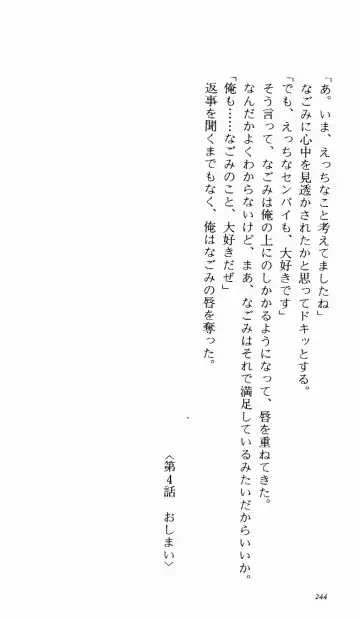 「あ。いま、えっちなこと考えてましたね」
なごみに心中を見透かされたかと思ってドキッとする。
「でも、えっちなセンパイも、大好きです」
そう言って、なごみは俺の上にのしかかるようになって、唇を重ねてきた。
なんだかよくわからないけど、まあ、なごみはそれで満足しているみたいだからいいか。
「俺も……なごみのこと、大好きだぜ」
返事を聞くまでもなく、俺はなごみの唇を奪った。
〈第4話　おしまい〉
244